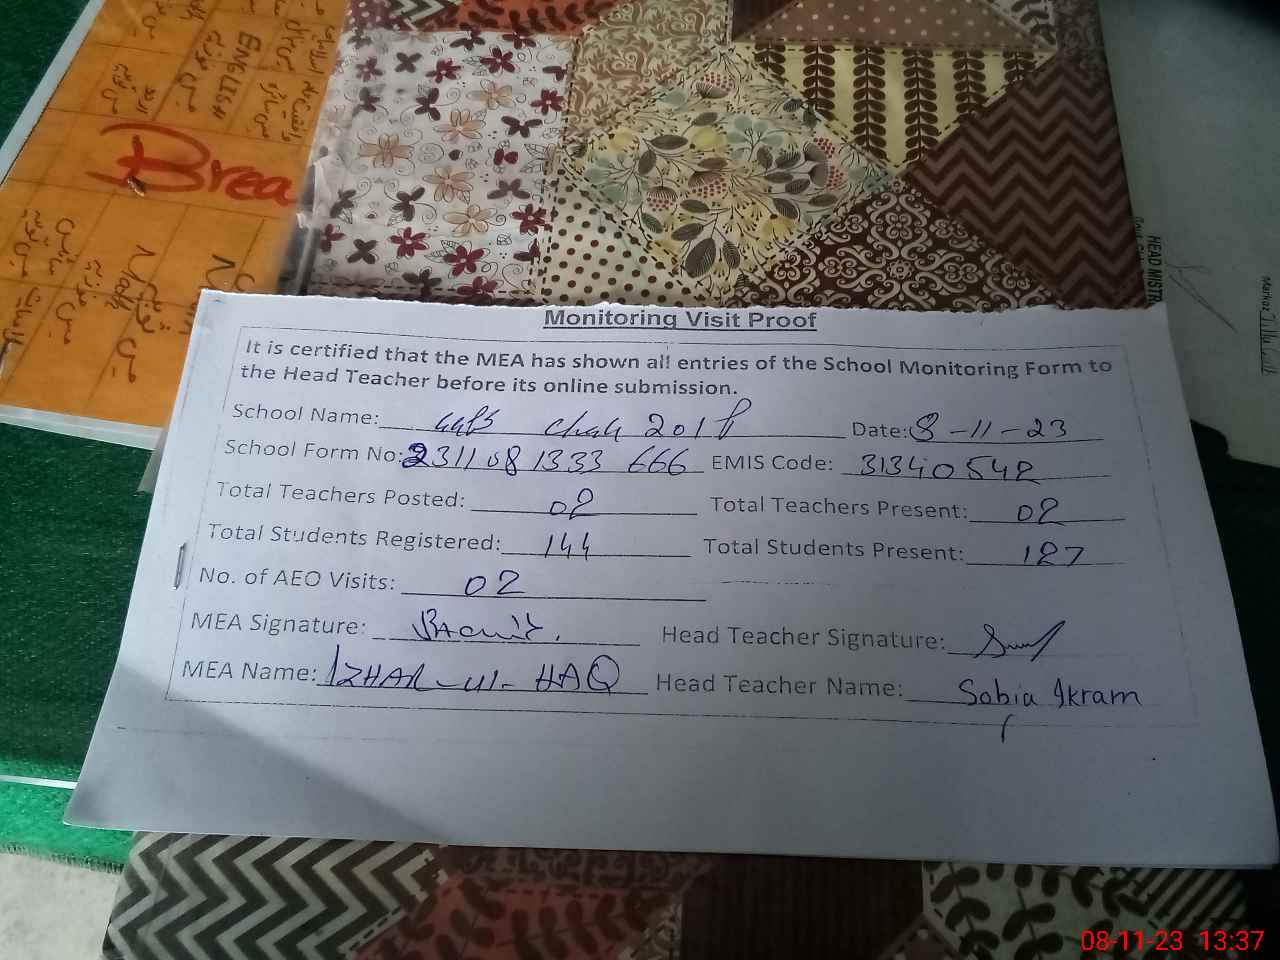 ENGLISH
Brea
Math
HEAD MISTR
Markaz
Monitoring Visit Proof
It is certified that the MEA has shown all entries of the School Monitoring Form to
the Head Teacher before its online submission.
School Name: chak 201 Date: 8-11-23
School Form No: 231108 1333 666 EMIS Code: 31340542
Total Teachers Posted: 02 Total Teachers Present: 02
Total Students Registered: 144 Total Students Present: 127
No. of AEO Visits: 02
MEA Signature: Head Teacher Signature:
MEA Name: IZHAR-Ul-HAQ Head Teacher Name: Sobia Ikram
08-11-23 13:37